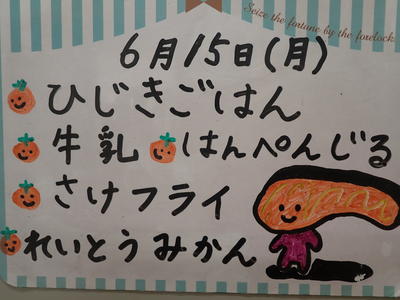 Seize the fortune by the forelock.
6月15日(月)
ひじきごはん
牛乳 はんぺんじる
さけフライ
れいとうみかん